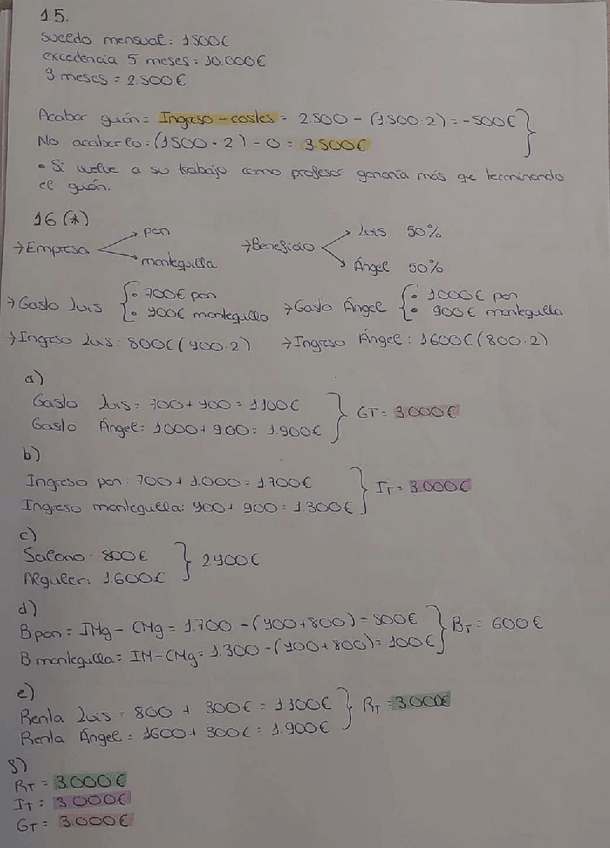 15.
sueldo mensual: 1500€
excedencia 5 meses = 10.000€
3 meses = 2.500€
Acabar guión = Ingreso - costes = 2.500 - (1500·2) = -500€
No acabarlo: (1500·2) - 0 = 3.500€
• Si vuelve a su trabajo como profesor ganaría más qe terminando
el guión.
16 (*)
→ Empresa pan mantequilla → Beneficio Luis 50% Ángel 50%
→ Gasto Luis { • 700€ pan • 400€ mantequilla → Gasto Ángel { • 1000€ pan • 900€ mantequilla
→ Ingreso Luis: 800€ (400·2) → Ingreso Ángel: 1600€ (800·2)
a)
Gasto Luis = 700 + 400 = 1.100€
Gasto Ángel = 1.000 + 900 = 1.900€ } GT = 3.000€
b)
Ingreso pan: 700 + 1.000 = 1700€
Ingreso mantequilla: 400 + 900 = 1.300€ } IT = 3.000€
c)
Salario: 800€
Alquiler: 1.600€ } 2400€
d)
Bpan = IMg - CMg = 1.700 - (400+800) = 500€
B mantequilla = IM - CMg = 1.300 - (400+800) = 100€ } BT = 600€
e)
Renta Luis = 800 + 300€ = 1.100€
Renta Ángel = 1600 + 300€ = 1.900€ } RT = 3.000€
f)
RT = 3.000€
IT = 3.000€
GT = 3.000€